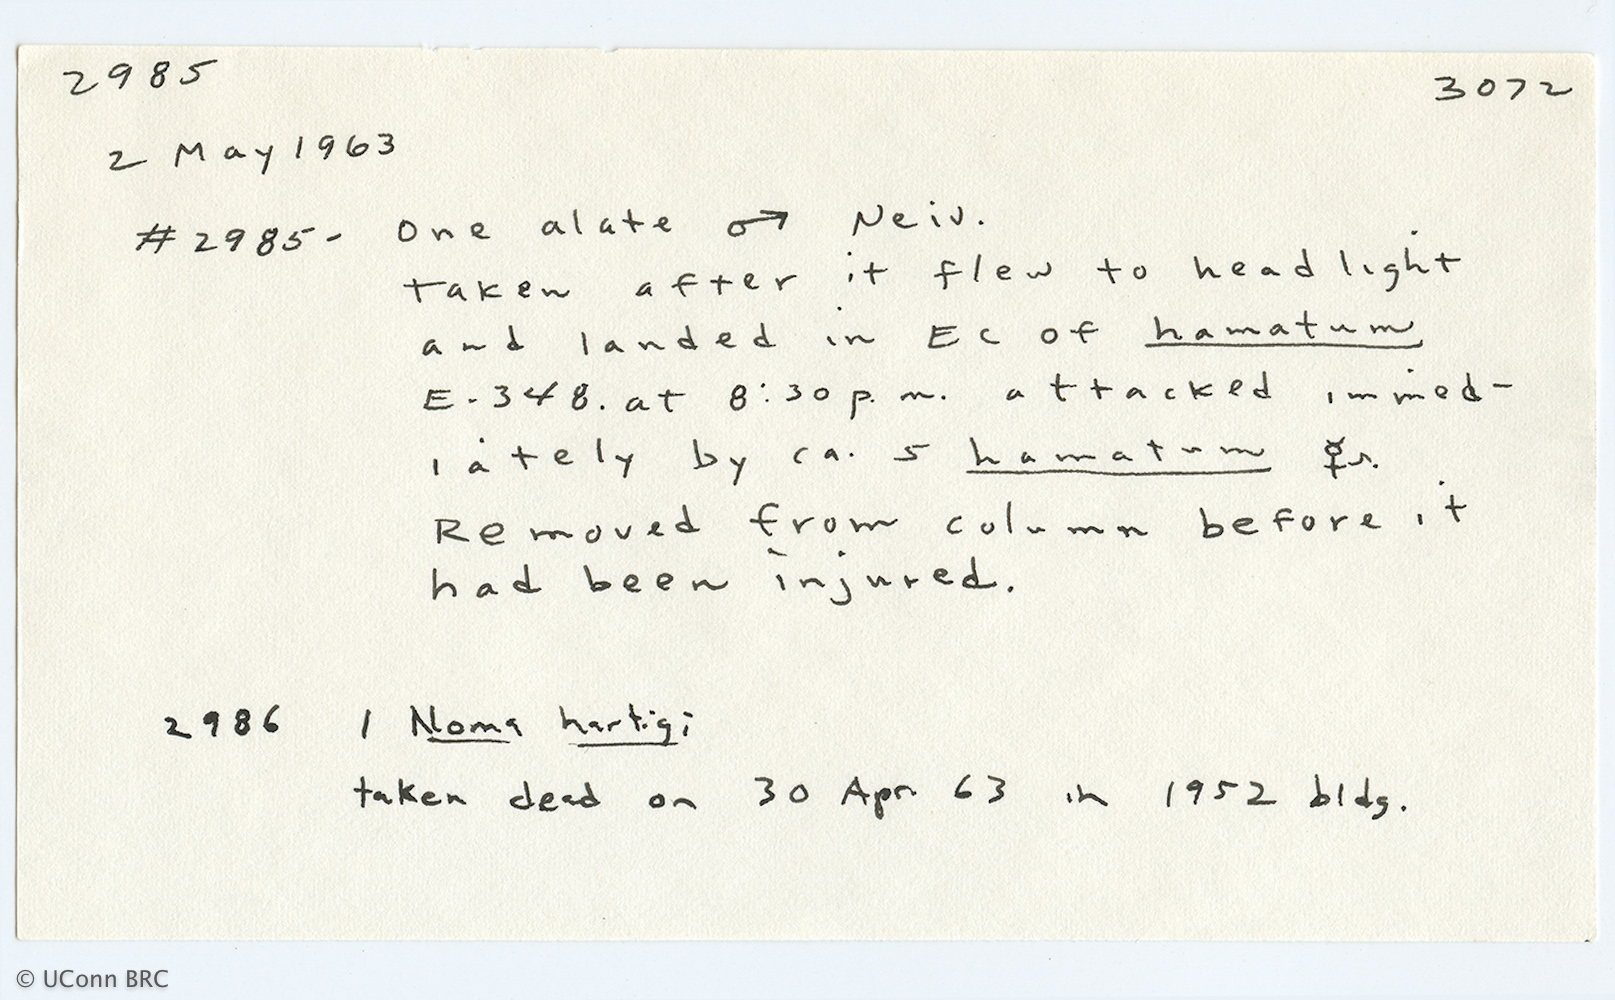 2985 3072
2 May 1963
#2985- One alate ♂ Neiv.
taken after it flew to headlight
and landed in EC of hamatum
E-348. at 8:30 p.m. attacked immed-
iately by ca. 5 hamatum ☿s.
Removed from column before it
had been injured.
2986 1 Noma hartigi
taken dead on 30 Apr 63 in 1952 bldg.
© UConn BRC